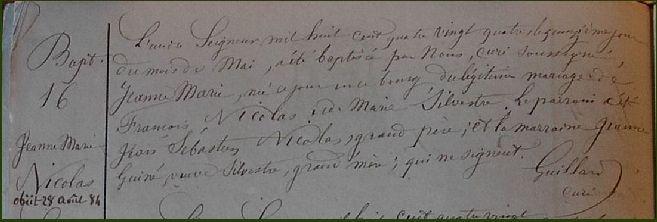 Bapt.
16
Jeanne Marie
Nicolas
obiit 28 août 84
L'an du Seigneur mil huit cent quatre vingt quatre le quinzième jour
du mois de Mai, a été baptisée par Nous, curé soussigné,
Jeanne Marie, née ce jour en ce bourg du légitime mariage de
François Nicolas et de Marie Silvestre. Le parrain a été
Jean Sébastien Nicolas, grand père; et la marraine Jeanne
veuve Silvestre, grand mère; qui ne signent.
Guillard
curé